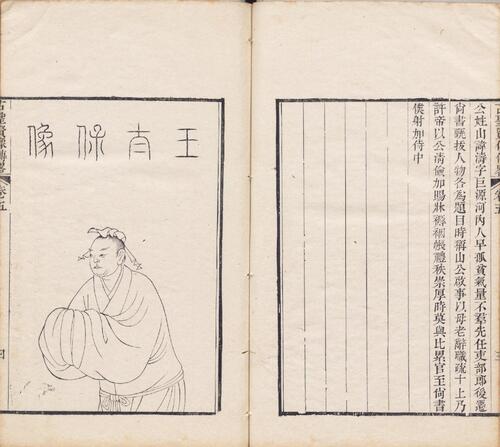 古聖賢像傳畧 卷五
公姓山諱濤字巨源河內人早孤貧氣量不羣先任吏部郎後遷
尙書甄拔人物各爲題目時稱山公啟事以母老辭職疏十上乃
許帝以公清儉加賜牀褥裀帳禮秩崇厚時莫與比累官至尙書
僕射加侍中
王太保像
古聖賢像傳畧 卷五 四